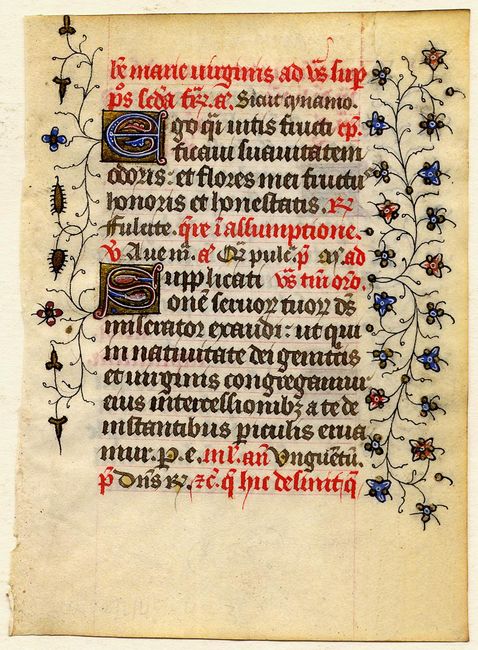 be marie uirginis ad vs sup
ps scda fr. a. Sicut cynamo.
Ego qi uitis fructi cp.
ficaui suauitatem
odoris: et flores mei fructus
honoris et honestatis. R
Fulcite. qre i assumptione.
V. Aue m. a Qm pulc. p ad
Supplicati vs tim oro.
one seruor tuor ds
miserator exaudi: ut qui
in natiuitate dei genitcis
et uirginis congregamur
eius intercessionibz a te de
instantibus piculis erua
mur. p. e. an Vnguentu.
p Dns R. zc. q hic desinit q